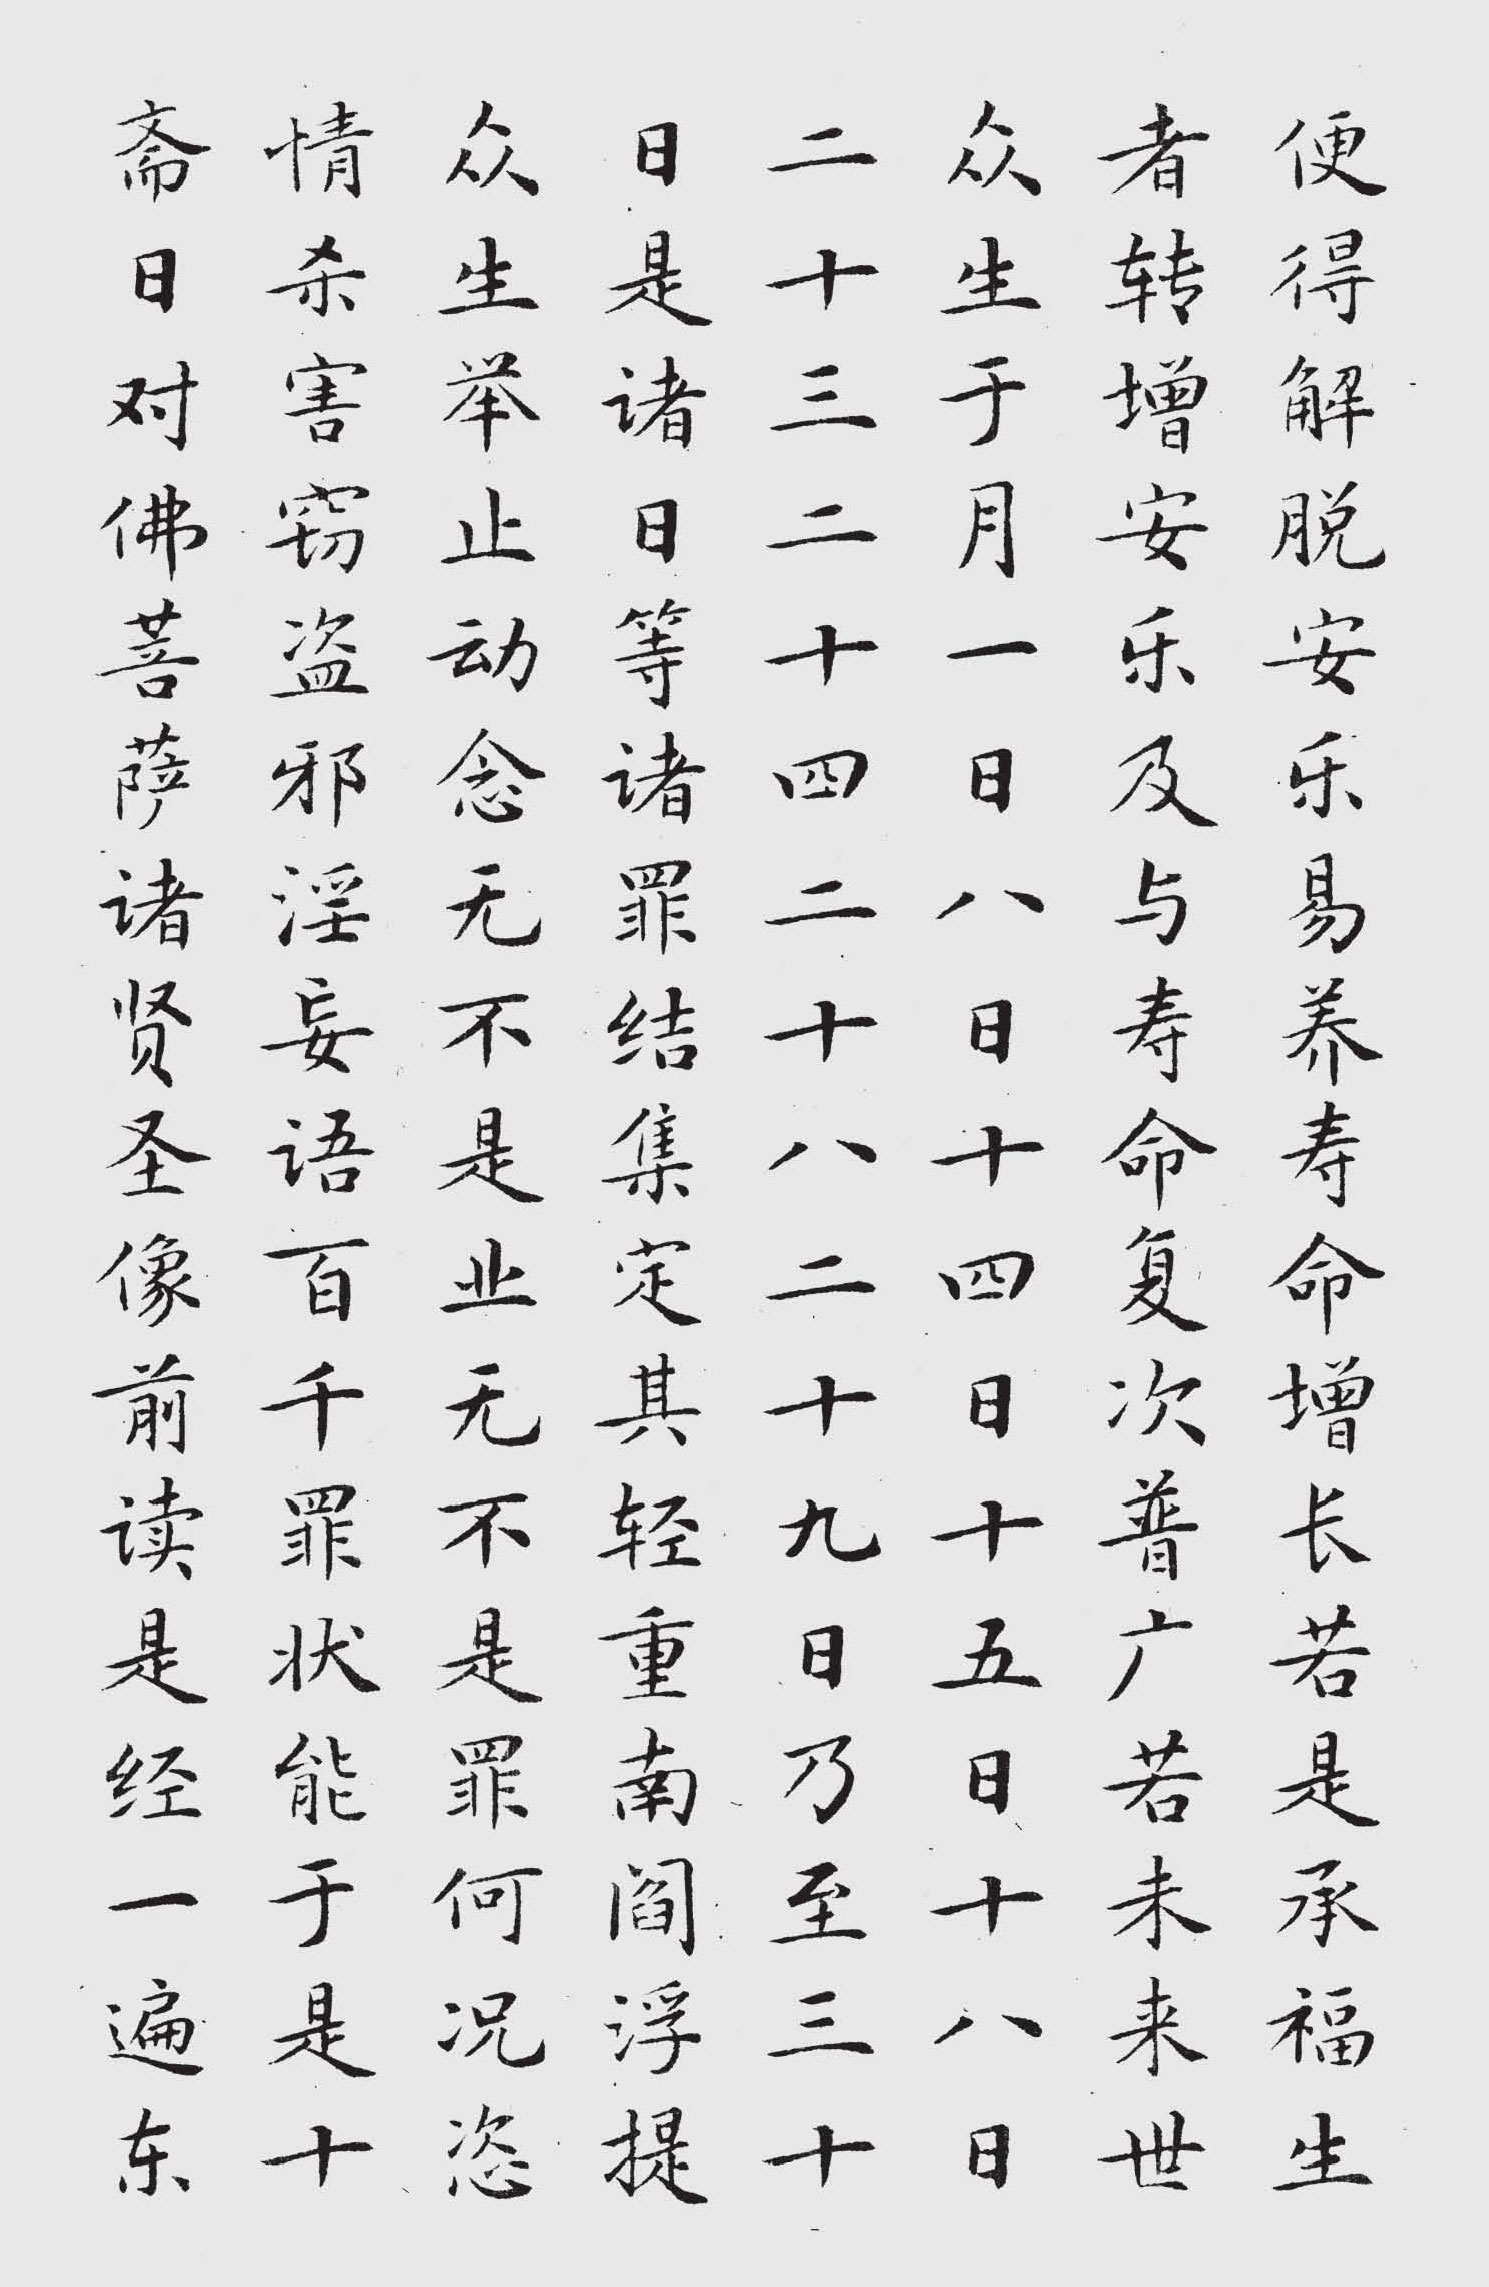 便得解脱安乐易养寿命增长若是承福生
者转增安乐及与寿命复次普广若未来世
众生于月一日八日十四日十五日十八日
二十三二十四二十八二十九日乃至三十
日是诸日等诸罪结集定其轻重南阎浮提
众生举止动念无不是业无不是罪何况恣
情杀害窃盗邪淫妄语百千罪状能于是十
斋日对佛菩萨诸贤圣像前读是经一遍东